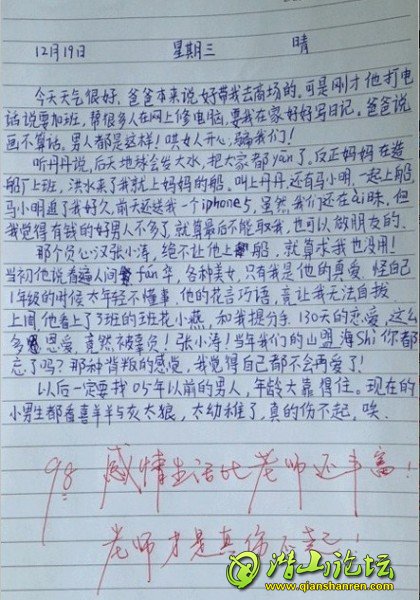 12月19日 星期三 晴
今天天气很好、爸爸本来说好带我去商场的。可是刚才他打电
话说要加班，帮很多人在网上修电脑，要我在家好好写日记。爸爸说
画不算话。男人都是这样！哄女人开心，骗我们！
听丹丹说，后天地球会发大水，把大家都yan了。反正妈妈在造
船厂上班，洪水来了我就上妈妈的船。叫上丹丹，还有马小明，一起上船
马小明追了我好久，前天还送我一个iphone5，虽然我们还在ai昧，但
我觉得有钱的好男人不多了，就算最后不能取我，也可以做朋友的。
那个负心汉张小涛，绝不让他上船，就算求我也没用！
当初他说看遍人间fán华，各种美女，只有我是他的真爱，怪自己
1年级的时候太年轻不懂事，他的花言巧语，竟让我无法自拔
上周，他看上了3班的班花小燕，和我提分手，130天的恋爱，这么
多恩爱，竟然被辜负！张小涛！当年我们的山盟海Shi你都
忘了吗？那种背叛的感觉，我觉得自己都不会再爱了！
以后一定要找05年以前的男人，年龄大靠得住。现在的
小男生都看喜羊羊与灰太狼，太幼稚了，真的伤不起，唉
98 感情生活比老师还丰富！
老师才是真伤不起！
潜山论坛
www.qianshanren.com